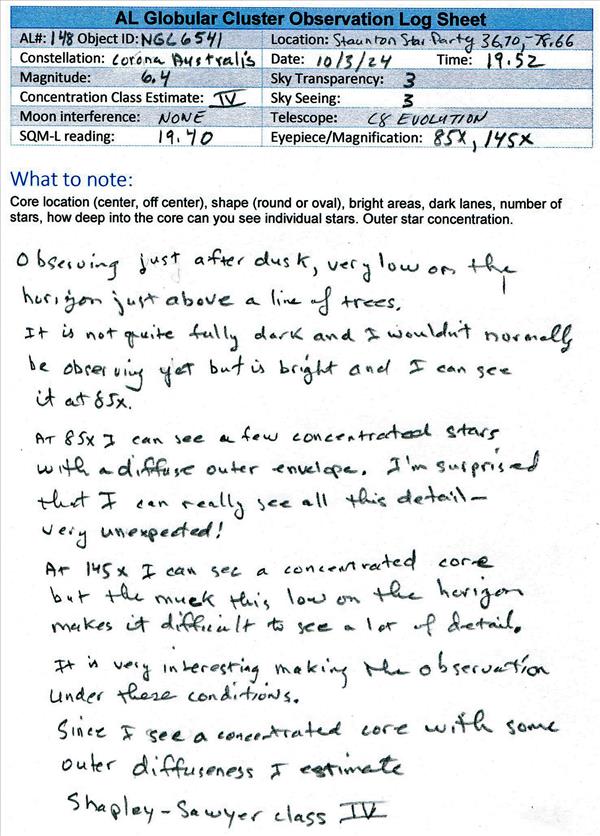 AL Globular Cluster Observation Log Sheet
AL#: 148 Object ID: NGC6541 Location: Staunton Star Party 36.70, -78.66
Constellation: Corona Australis Date: 10/3/24 Time: 19:52
Magnitude: 6.4 Sky Transparency: 3
Concentration Class Estimate: IV Sky Seeing: 3
Moon interference: NONE Telescope: C8 EVOLUTION
SQM-L reading: 19.40 Eyepiece/Magnification: 85X, 145X
What to note:
Core location (center, off center), shape (round or oval), bright areas, dark lanes, number of
stars, how deep into the core can you see individual stars. Outer star concentration.
Observing just after dusk, very low on the
horizon just above a line of trees.
It is not quite fully dark and I wouldn't normally
be observing yet but is bright and I can see
it at 85x.
At 85x I can see a few concentrated stars
with a diffuse outer envelope. I'm surprised
that I can really see all this detail-
very unexpected!
At 145x I can see a concentrated core
but the muck this low on the horizon
makes it difficult to see a lot of detail.
It is very interesting making the observation
under these conditions.
Since I see a concentrated core with some
outer diffuseness I estimate
Shapley-Sawyer class IV